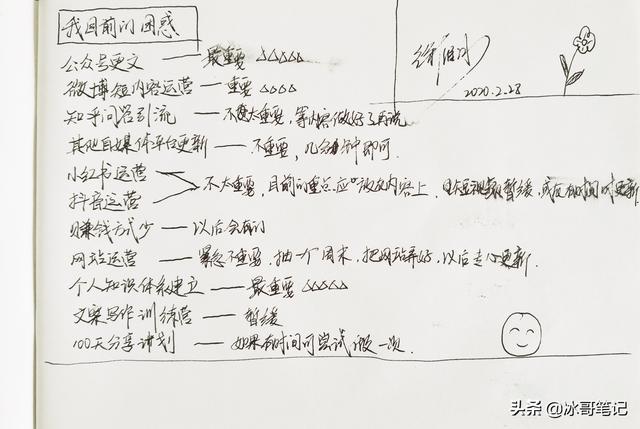 我目前的困惑
公众号更文 —— 最重要 △△△△△
微博短内容运营 —— 重要 △△△△
知乎问答引流 —— 不太重要，等内容做好了再说
其他自媒体平台更新 —— 不重要，几分钟即可.
小红书运营
抖音运营
不太重要，目前的重点应放在内容上，短视频暂缓，或有时间时更新
赚钱方式少 —— 以后会有的
网站运营 —— 紧急不重要，抽一个周末，把网站弄好，以后走心更新.
个人知识体系建立 —— 最重要 △△△△△
文案写作训练营 —— 暂缓
100天分享计划 —— 如果有时间可尝试做一次.
2020.2.28
头条 @冰哥笔记